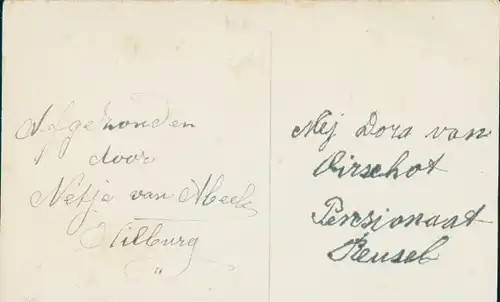 Afgezonden
door
Netje van Meele
Tilburg
"
Mej Dora van
Oirschot
Pensionaat
Reusel